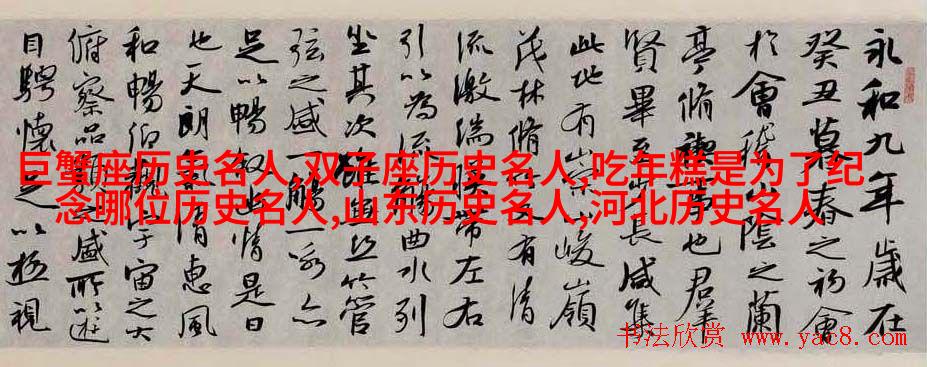 永和九年歲在
癸丑暮春之初會
於會稽山陰之蘭
亭脩禊事也群
賢畢至少長咸集
此地有崇山峻嶺
茂林脩竹又有清
流激湍映帶左右
引以為流觴曲水列
坐其次雖無絲竹管
弦之盛一觴一詠亦
足以暢叙幽情是日
也天朗氣清惠風
和暢仰觀宇宙之大
俯察品類之盛所以遊
目騁懷足以極視
巨蟹座历史名人,双子座历史名人,吃年糕是为了纪
念哪位历史名人,山东历史名人,河北历史名人
书法欣赏 www.yac8.com